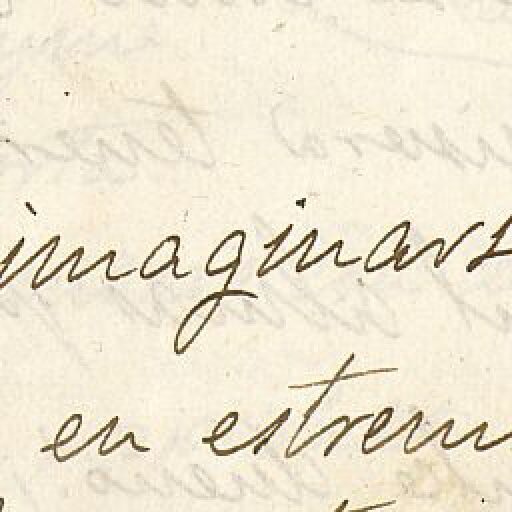 imaginars
en estrem